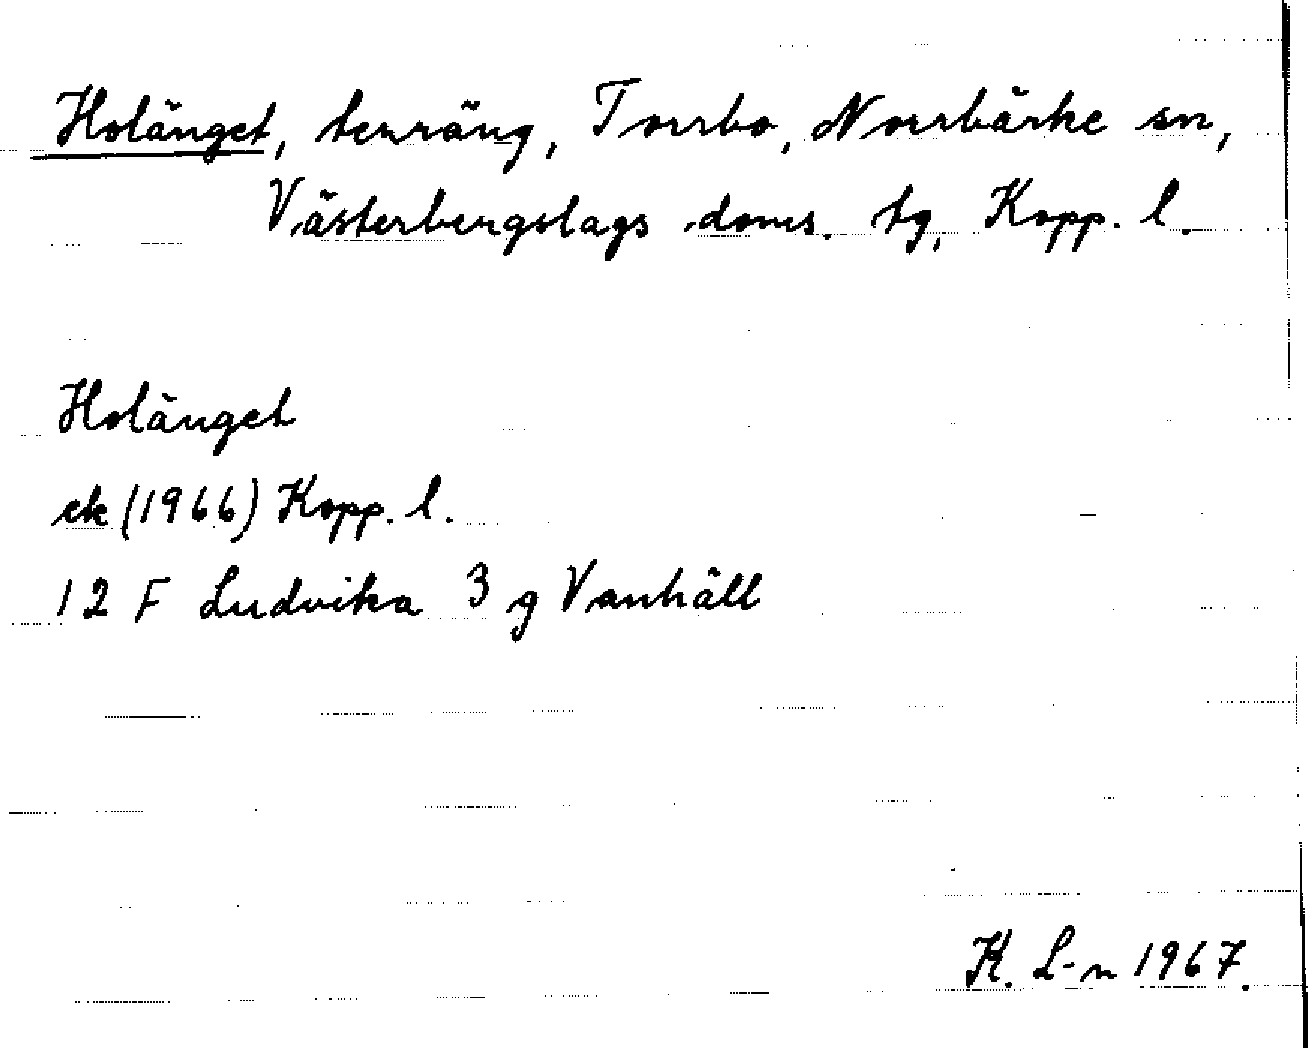 Holänget, terräng, Torrbo, Norrbärke sn,
Västerbergslags doms. tg, Kopp. l.
Holänget
ek (1966) Kopp. l.
12 F Ludvika 3 g Vanhäll
K. L-n 1967.